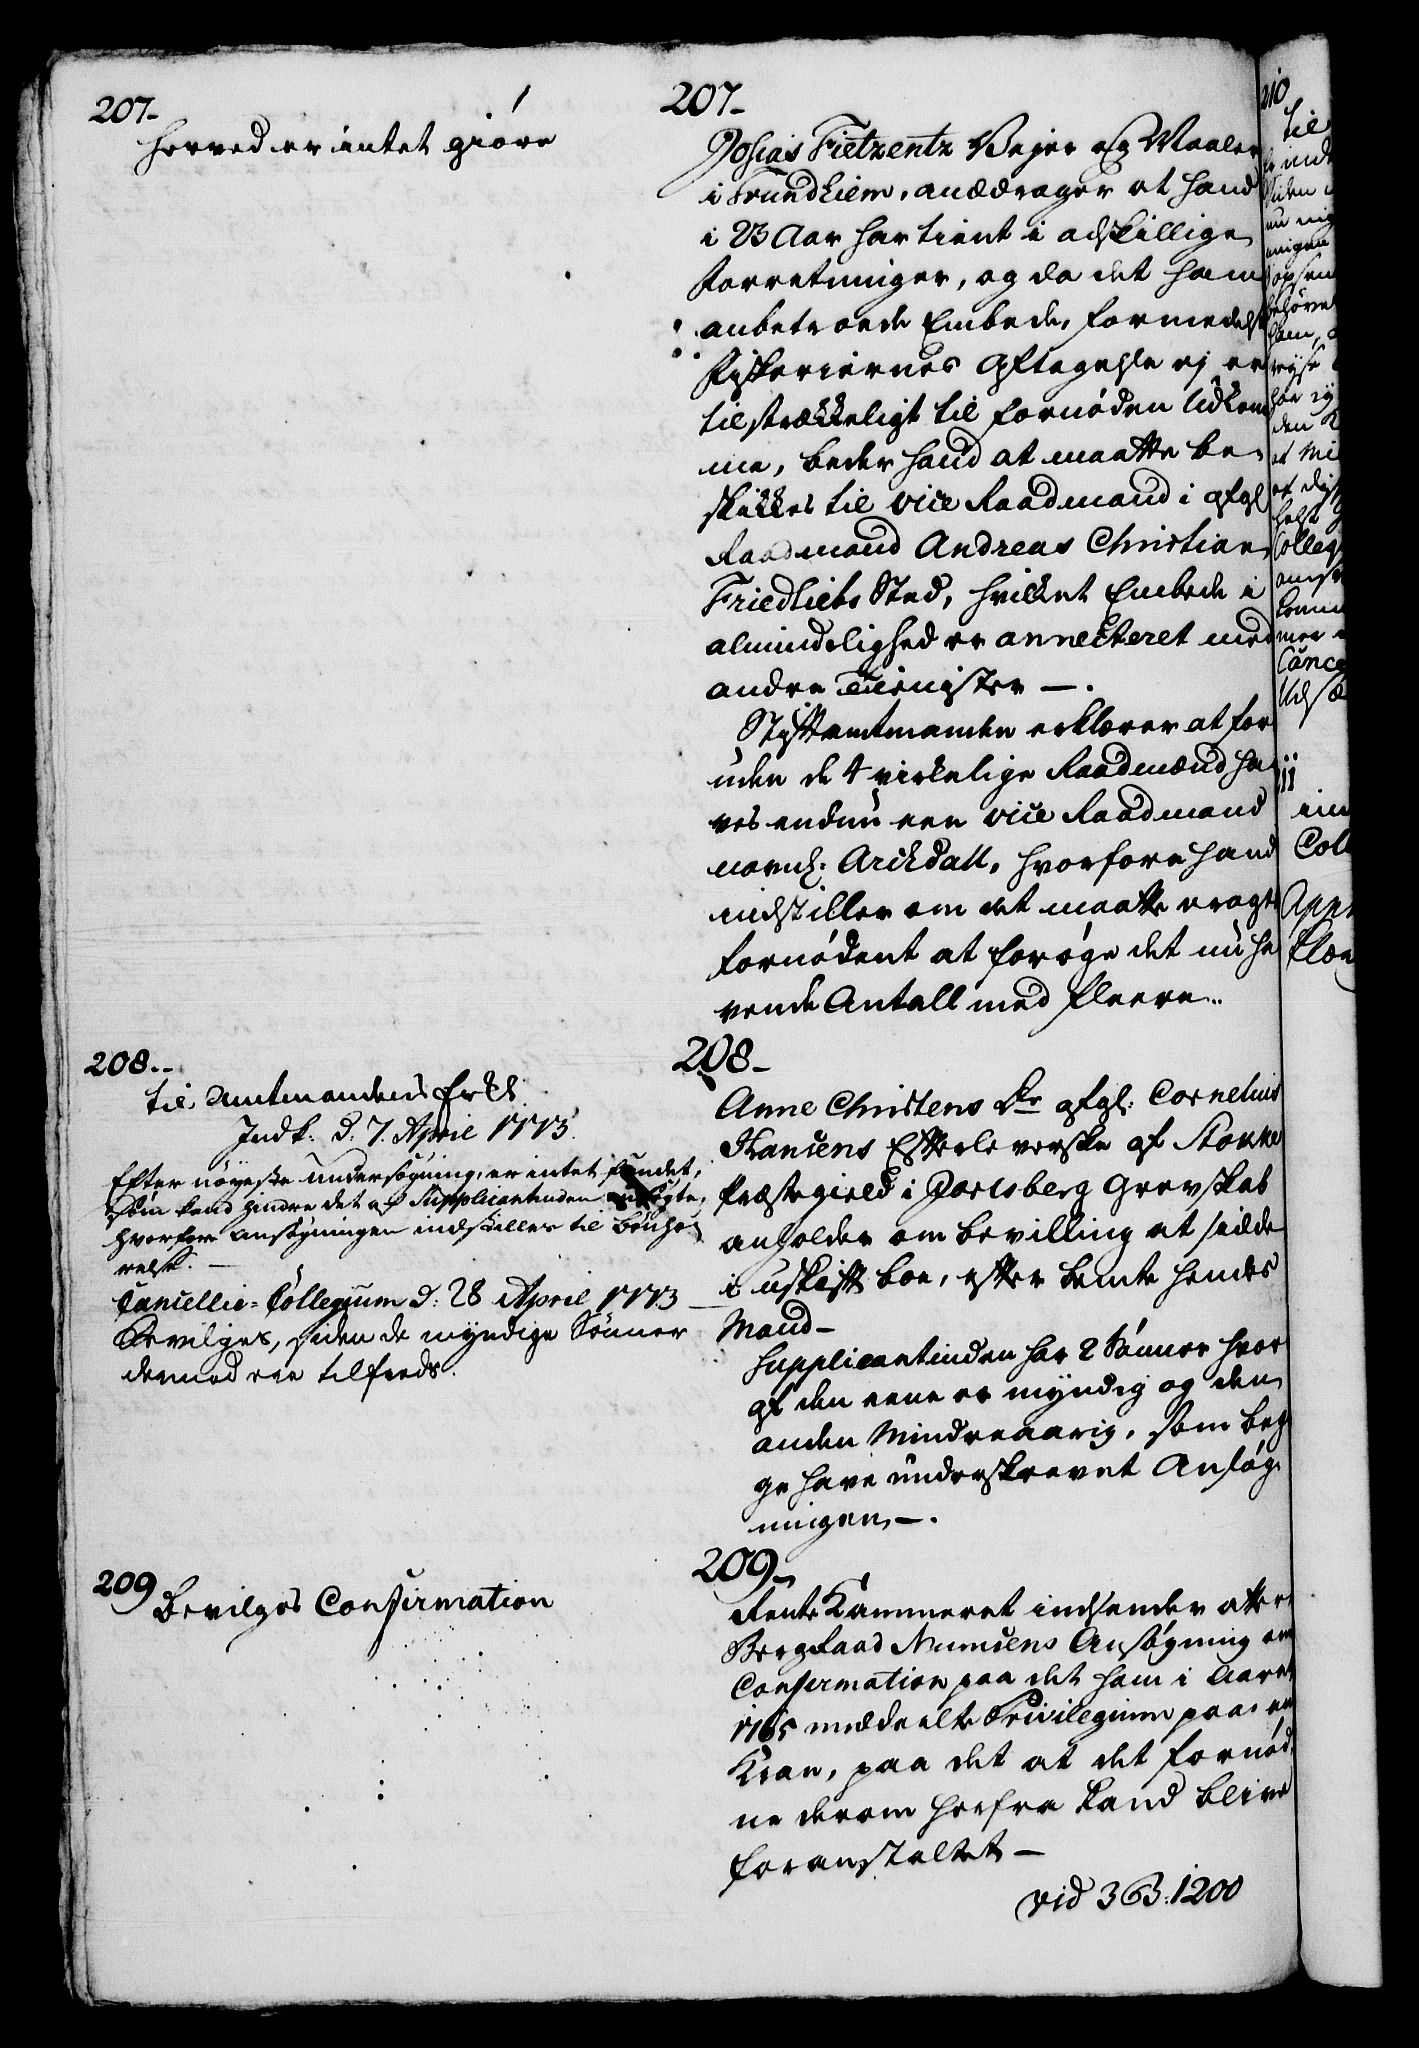 207.
herved er intet giøre
207.
Josias Fietzentz Vejer og Maaler
i Trundhiem, anddrager at hand
i 23 Aar har tient i adskillige
forretninger, og da det ham
anbetroede Embede, formedelst
Fiskeriernes Aftagelse ej er
tilstrækkeligt til fornøden Udkom
me, beder hand at maatte be-
skikkes til vice Raadmand i afgl
Raadmand Andreas Christian
Friedliebs Sted, hvilket Embede i
almindelighed er annecteret med
andre Tienister —.
Stiftamtmanden erklærer at for
uden de 4 virkelige Raadmænd ha
ves endnu een vice Raadmand
navnl. Arildall, hvorfore hand
indstiller om det maatte eragte
fornødent at forøge det nu ha
vende Antall med fleere..
208.
til Amtmandens Erkl.
Indk: d. 7. April 1773.
Efter nøyeste undersøgning, er intet fundet,
som kand hindre det af Supplicantinden ansøgte,
hvorfore ansøgningen indstilles til bønhø-
relse. —
Cancellie-Collegium d: 28 April 1773
Bevilges, siden de myndige Sønner
dermed ere tilfreds.
208.
Anne Christens Dr afgl: Cornelius
Hansens Efterleverske af Stokke
Præstegield i Jarlsberg Grevskab
anholder om bevilling at sidde
i uskift boe, efter bemte hendes
Mand —
Supplicantinden har 2 Sønner hvor
af den eene er myndig og den
anden Mindreaarig, som beg
ge have underskrevet Ansøg
ningen —.
209
Bevilges Confirmation
209.
RenteKammeret indsender atter
BergRaad Numsens Ansøgning om
Confirmation paa det ham i Aaret
1765 meddeelte Privilegium paa en
Kran, paa det at det fornød
ne derom herfra kand blive
foranstaltet —
vid 363: 1200